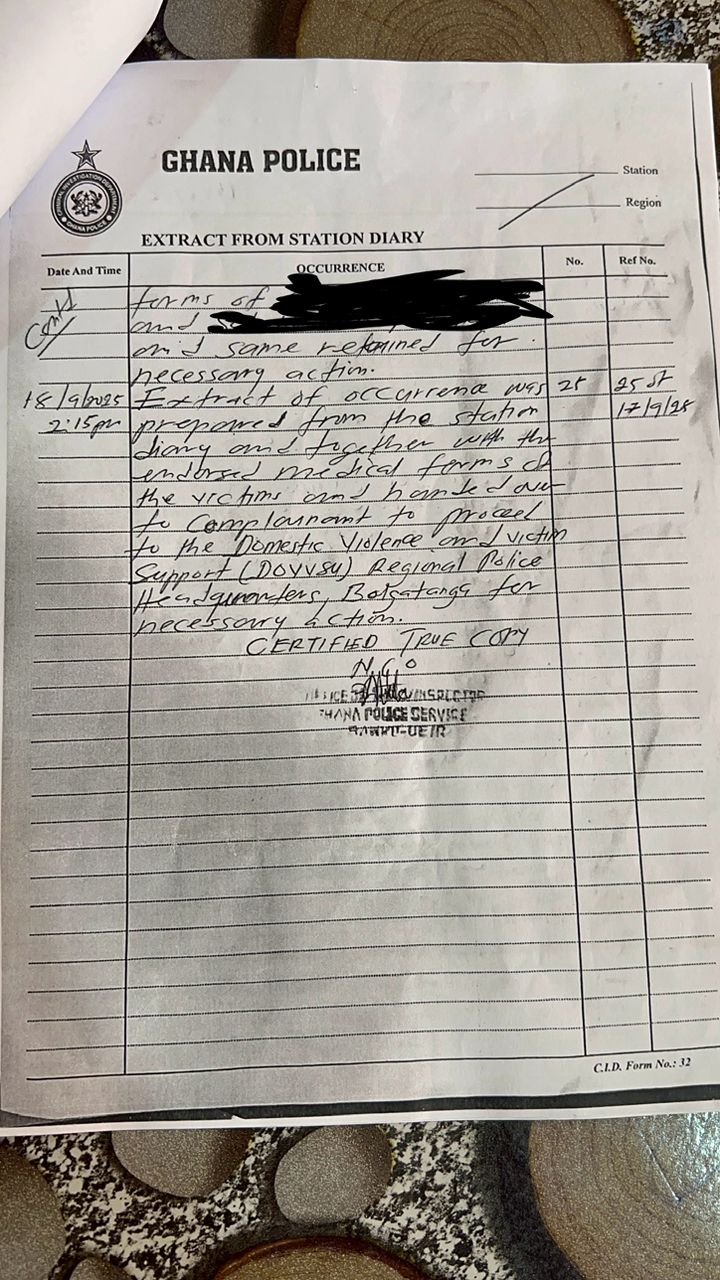 GHANA POLICE
Station
Region
CRIMINAL INVESTIGATION DEPARTMENT
GHANA POLICE
EXTRACT FROM STATION DIARY
Date And Time OCCURRENCE No. Ref No.
Contd forms of
and
and same retained for
necessary action.
18/9/2025 Extract of occurrence was 25 25 of
2:15pm prepared from the station 17/9/25
diary and together with the
endorsed medical forms of
the victims and handed over
to Complainant to proceed
to the Domestic Violence and victim
Support (DOVVSU) Regional Police
Headquarters, Bolgatanga for
necessary action.
CERTIFIED TRUE COPY
N.C.O
INSPECTOR
GHANA POLICE SERVICE
C.I.D. Form No.: 32